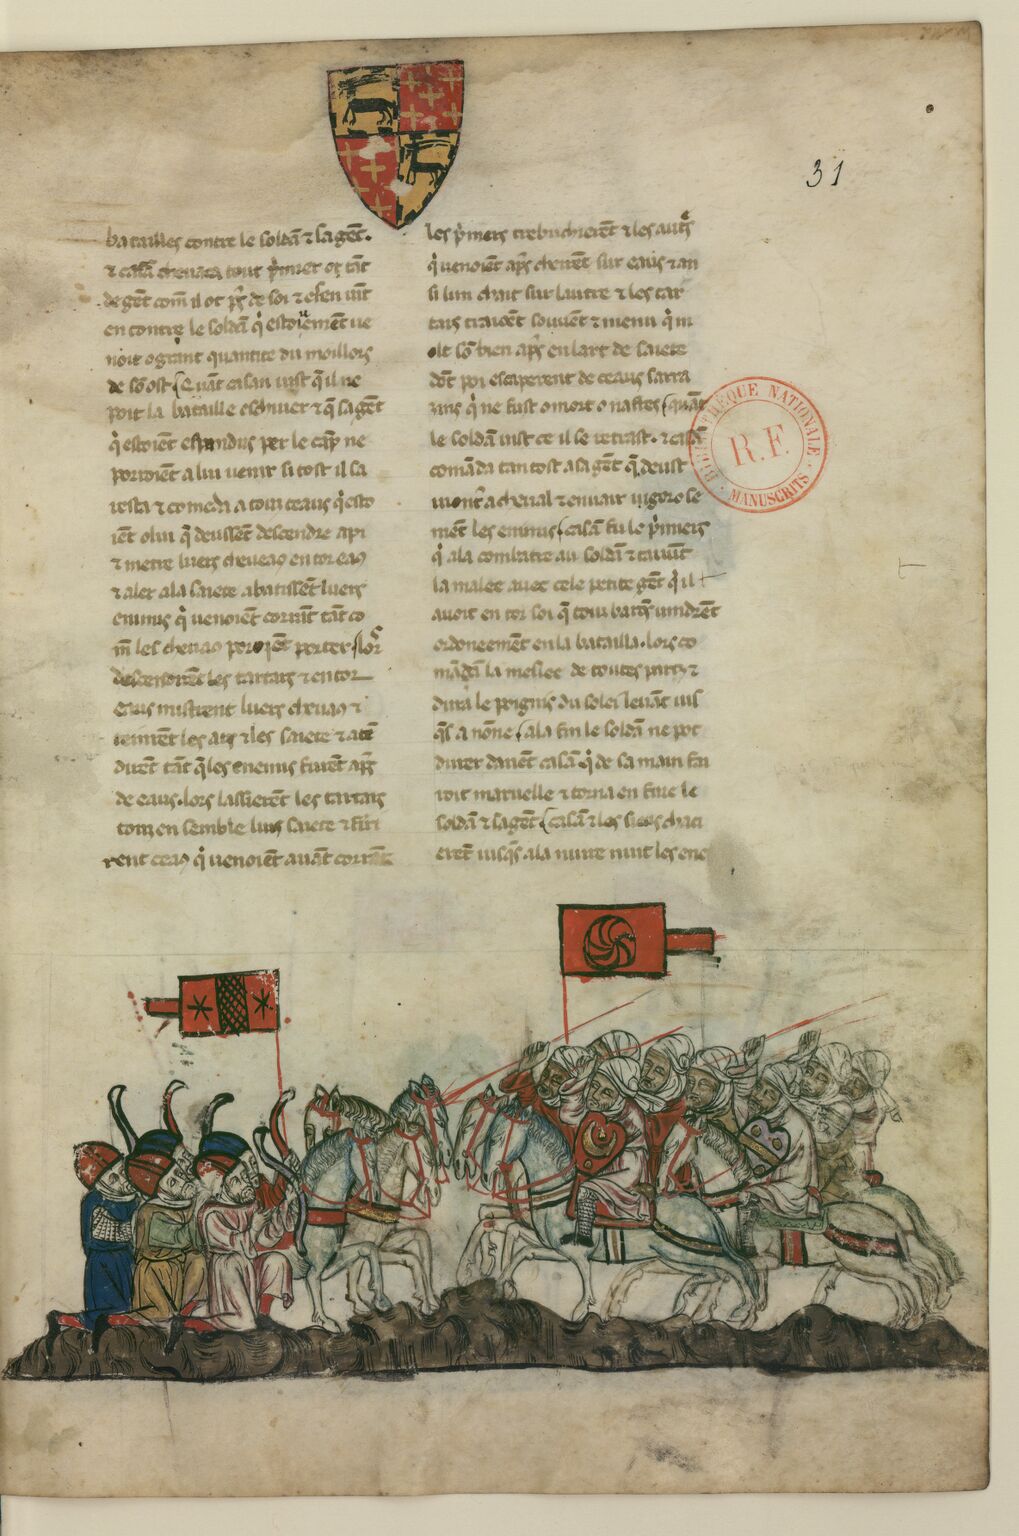 31
batailles contre le soldã ⁊ sa gẽt.
⁊ casã cheuaca tout p̃mier
de gẽt com̃ il ot p̃s de soi ⁊
en contre le soldã q̃
noit o grant quantite du meillors
de sõ ost Quãt casan uist q̃ il ne
poit la bataille eschiuer ⁊ q̃ sa gẽt
q̃ estoiẽt espandus per le cãp ne
porroiẽt a lui uenir si tost il sa
resta ⁊ comẽda a touz ceaus q̃ esto
iẽt o lui q̃ deussẽt descendre a pi
⁊ metre luers cheuaos en tor eaos
⁊ aler a la saiete abatissẽt luers
enimis q̃ uenoiẽt corrãt tãt co
m̃ les cheuaos poroiẽt porter lors
descendirẽt les tartars ⁊ en tor
eaus mistrent luers cheuaos ⁊
tenirẽt les ars ⁊ les saiete ⁊ atẽ
dirẽt tãt q̃ les enemis furẽt ap̃s
de eaus. lors lassierẽt les tartars
touz en semble luers saiete ⁊ firi
rent ceaos q̃ uenoiẽt auãt corrãt
les p̃miers trebuchierẽt ⁊ les autr̃s
q̃ uenoiẽt ap̃s cheirẽt sur eaus ⁊ an
si lun chait sur lautre ⁊ les tar
tars traioẽt souuẽt ⁊ menu q̃ m
olt sõ bien ap̃s en lart de saiete
dõt poi escaperent de ceaus sarra
zins q̃ ne fust o mort o nafres quãt
le soldã uist ce il se retrast. ⁊ casã
comãda tan tost a sa gẽt q̃ deust
mõt̃ a cheual ⁊ enuair uigorose
mẽt les enimis casã fu le p̃miers
q̃ ala combatre au soldã ⁊
la malee auec cele petite gẽt q̃ il
auoit en tor soi q̃ touz batrs uindrẽt
ordoneemẽt en la bataille. lors co
mãda la meslee de toutes parz ⁊
dura le poignis du solei leuãt ius
q̃s a nõne a la fin le soldã ne pot
durer dauẽt casã q̃ de sa main fai
soit maruelle ⁊ torna en fuie le
soldã ⁊ sa gẽt casã ⁊ les siens chaci
erẽt iusq̃s a la nuite nuit les ene
BIBLIOTHÈQUE NATIONALE
R.F.
MANUSCRITS